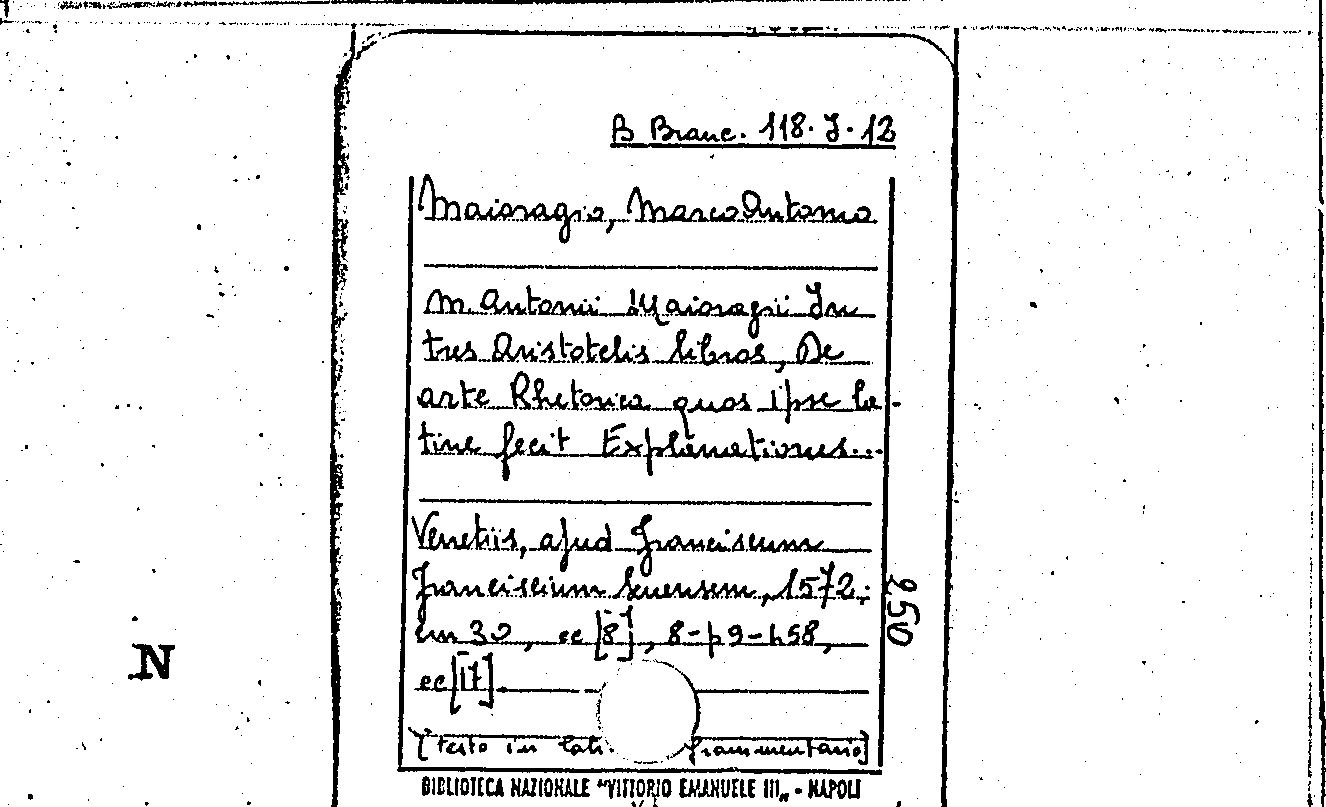 B Branc. 118. J. 12
Maioragio, Marco Antonio
M. Antonii Maioragii In
tres Aristotelis libros, De
arte Rhetorica quos ipse la-
tine fecit Explanationes...
Venetiis, apud Franciscum
Franciscium Senensem, 1572;
cm 30, cc [8], 8-p9-458,
cc [17].
250
N
[testo in lati frammentario]
BIBLIOTECA NAZIONALE "VITTORIO EMANUELE III„ - NAPOLI